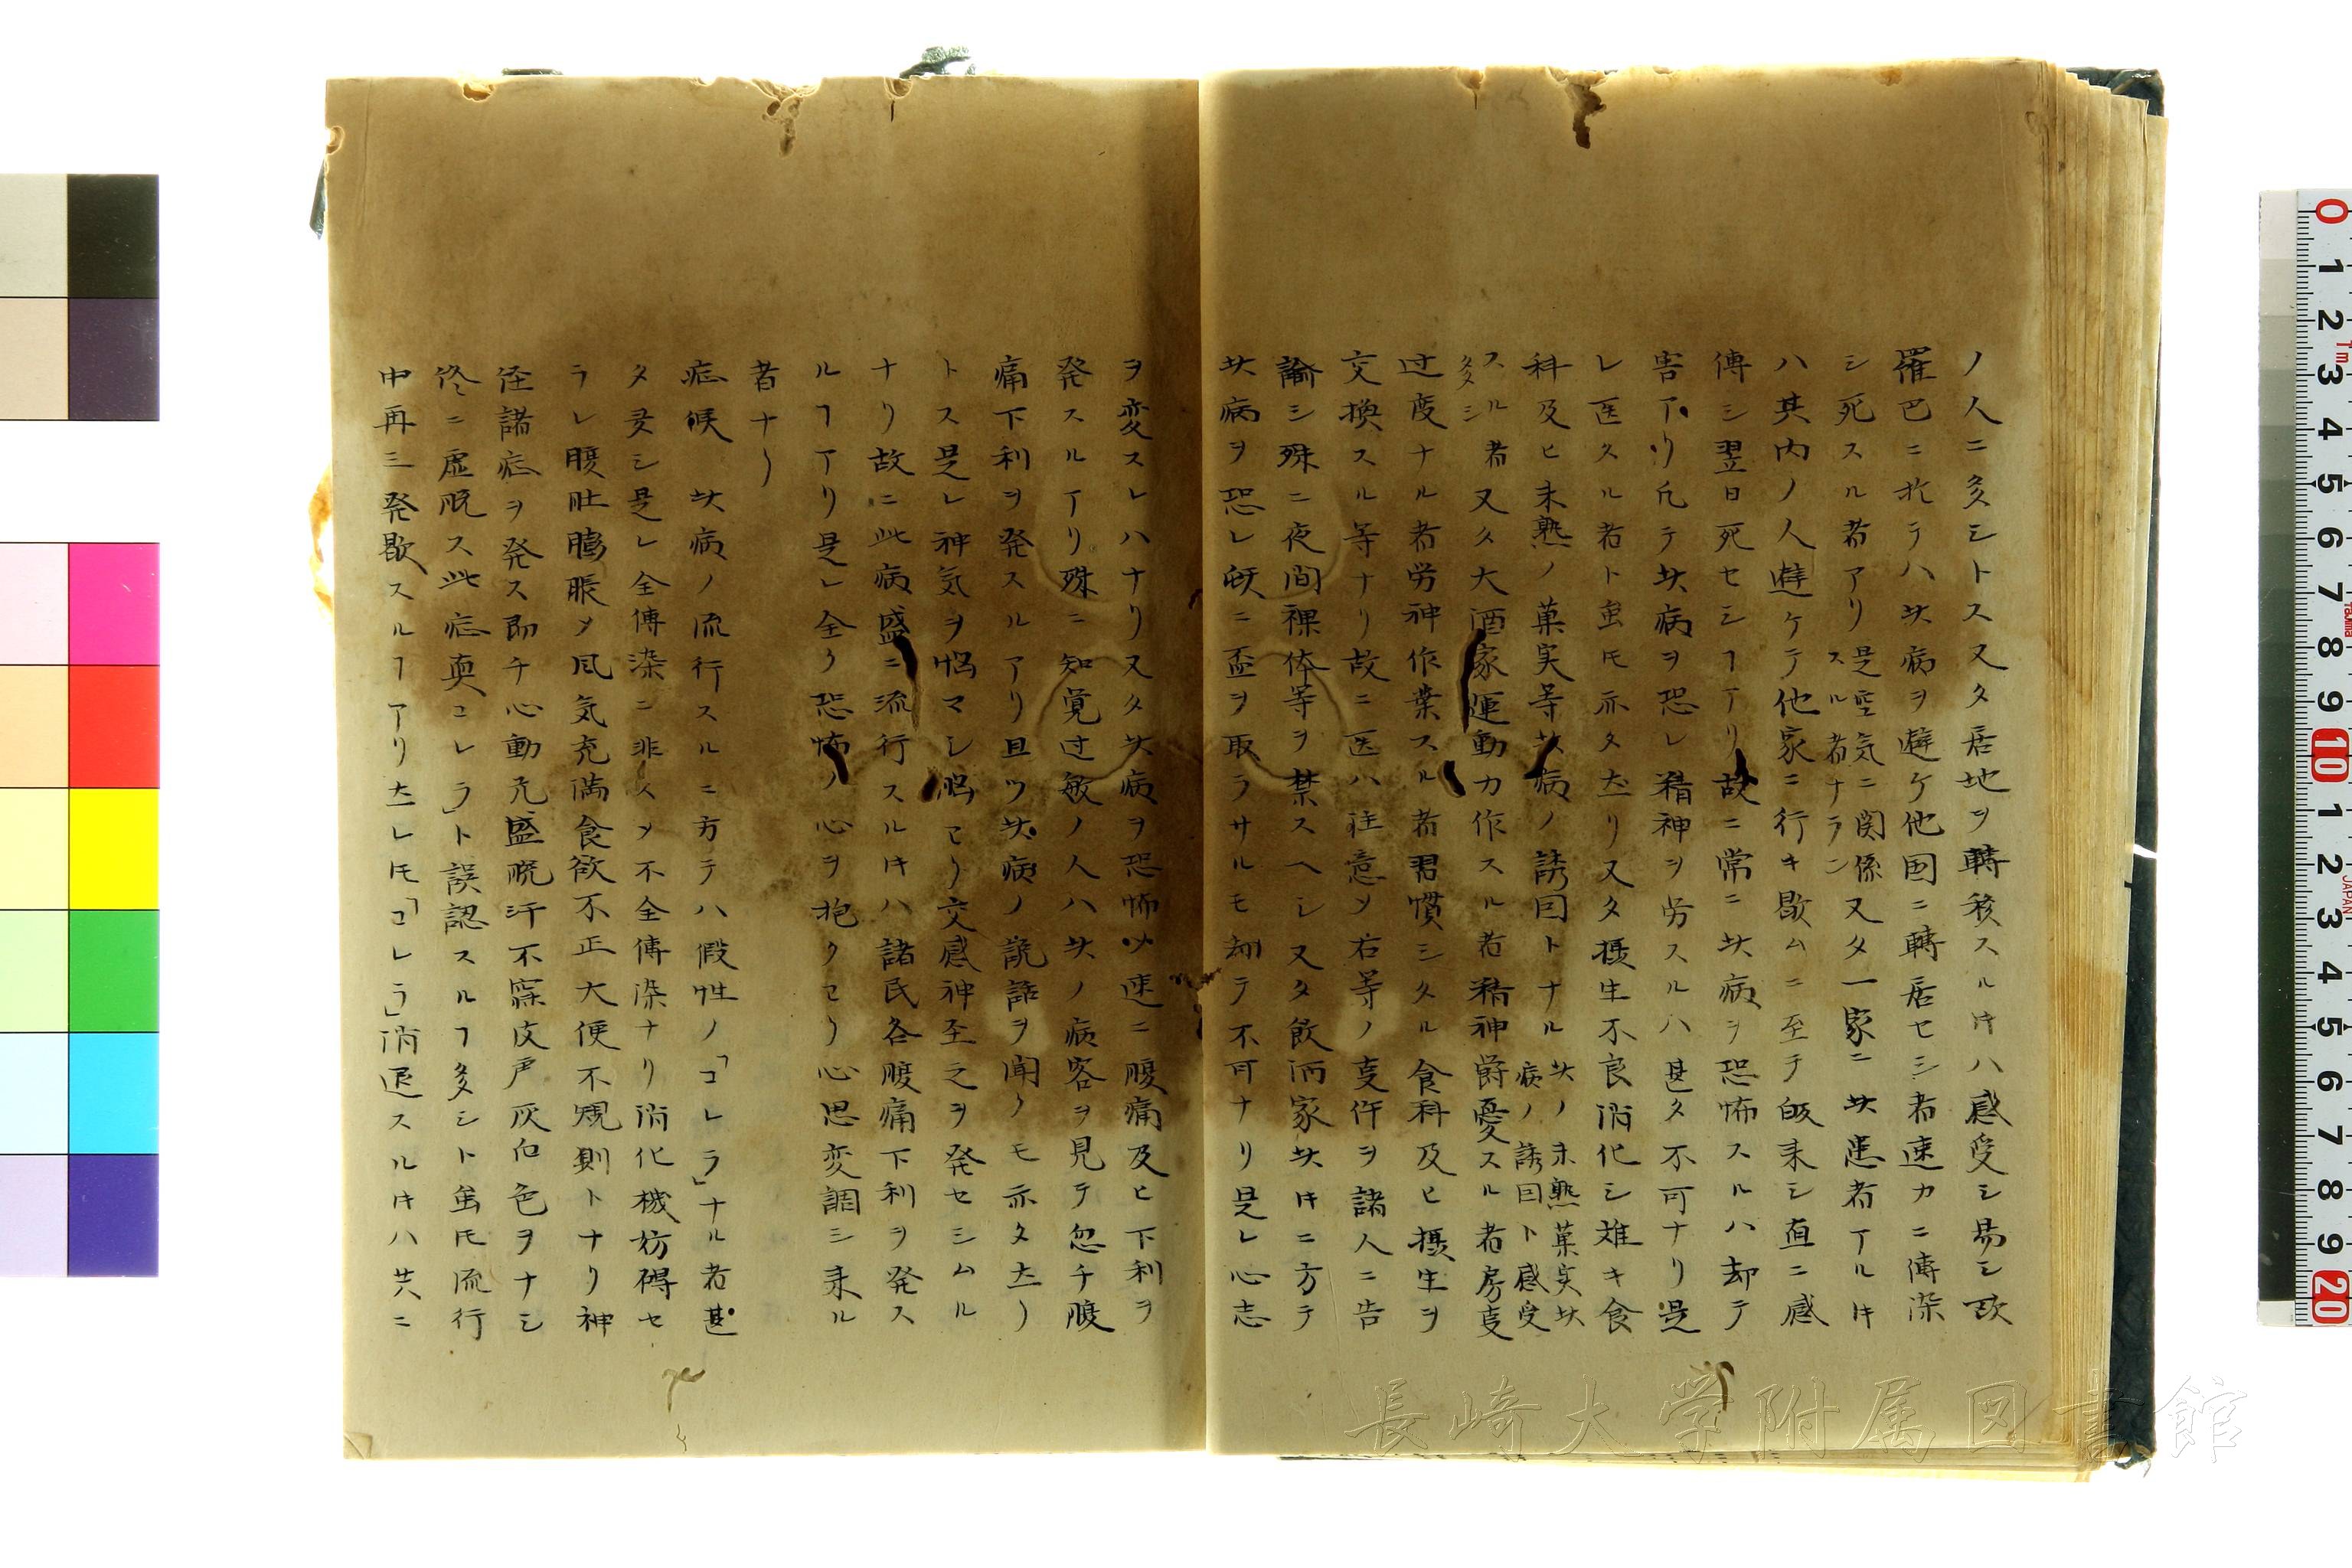 ノ人ニ多シトス又タ居地ヲ轉移スルヰハ感受シ易シ故
羅巴ニ於テハ此病ヲ避ケ他国ニ轉居セシ者速カニ傳染
シ死スル者アリ是空気ニ関係スル者ナラン又タ一家ニ此患者アルヰ
ハ其内ノ人避ケテ他家ニ行キ歇ムニ至テ皈来シ直ニ感
傳シ翌日死セシヿアリ故ニ常ニ此病ヲ恐怖スルハ却テ
害アリ凢テ此病ヲ恐レ精神ヲ労スルハ甚タ不可ナリ是
レ医タル者ト虽𪜈亦タ尓リ又タ摂生不良消化シ難キ食
料及ヒ未熟ノ菓実等此病ノ誘因トナル此ノ未熟菓実此病ノ誘因ト感受
スル者多シ又タ大酒家運動力作スル者精神欝憂スル者房事
过度ナル者労神作業スル者習慣シタル食料及ヒ摂生ヲ
交換スル等ナリ故ニ医ハ注意ソ右等ノ事件ヲ諸人ニ告
諭シ殊ニ夜間裸体等ヲ禁スヘシ又タ飲酒家此ヰニ方テ
此病ヲ恐レ妖ニ盃ヲ取ラサルモ却テ不可ナリ是レ心志
ヲ変スレハナリ又タ此病ヲ恐怖ソ速ニ腹痛及ヒ下利ヲ
発スルアリ殊ニ知覚过敏ノ人ハ此ノ病客ヲ見テ忽チ腹
痛下利ヲ発スルアリ且ツ此病ノ説話ヲ聞クモ亦タ尓リ
トス是レ神気ヲ悩マシ脳ヨリ交感神至之ヲ発セシムル
ナリ故ニ此病盛ニ流行スルヰハ諸民各腹痛下利ヲ発ス
ルヿアリ是レ全ク恐怖ノ心ヲ抱クヨリ心思変調シ来ル
者ナリ
症候 此病ノ流行スルニ方テハ假性ノ「コレラ」ナル者甚
タ多シ是レ全傳染ニ非スソ不全傳染ナリ消化機妨碍セ
ラレ腹肚膨脹ソ風気充満食欲不正大便不規則トナリ神
経諸症ヲ発ス即チ心動亢盛脱汗不寐皮膚灰白色ヲナシ
終ニ虚脱ス此症真「コレラ」ト誤認スルヿ多シト虽𪜈流行
中再三発歇スルヿアリ尓レ𪜈「コレラ」消退スルヰハ共ニ
長崎大学附属図書館